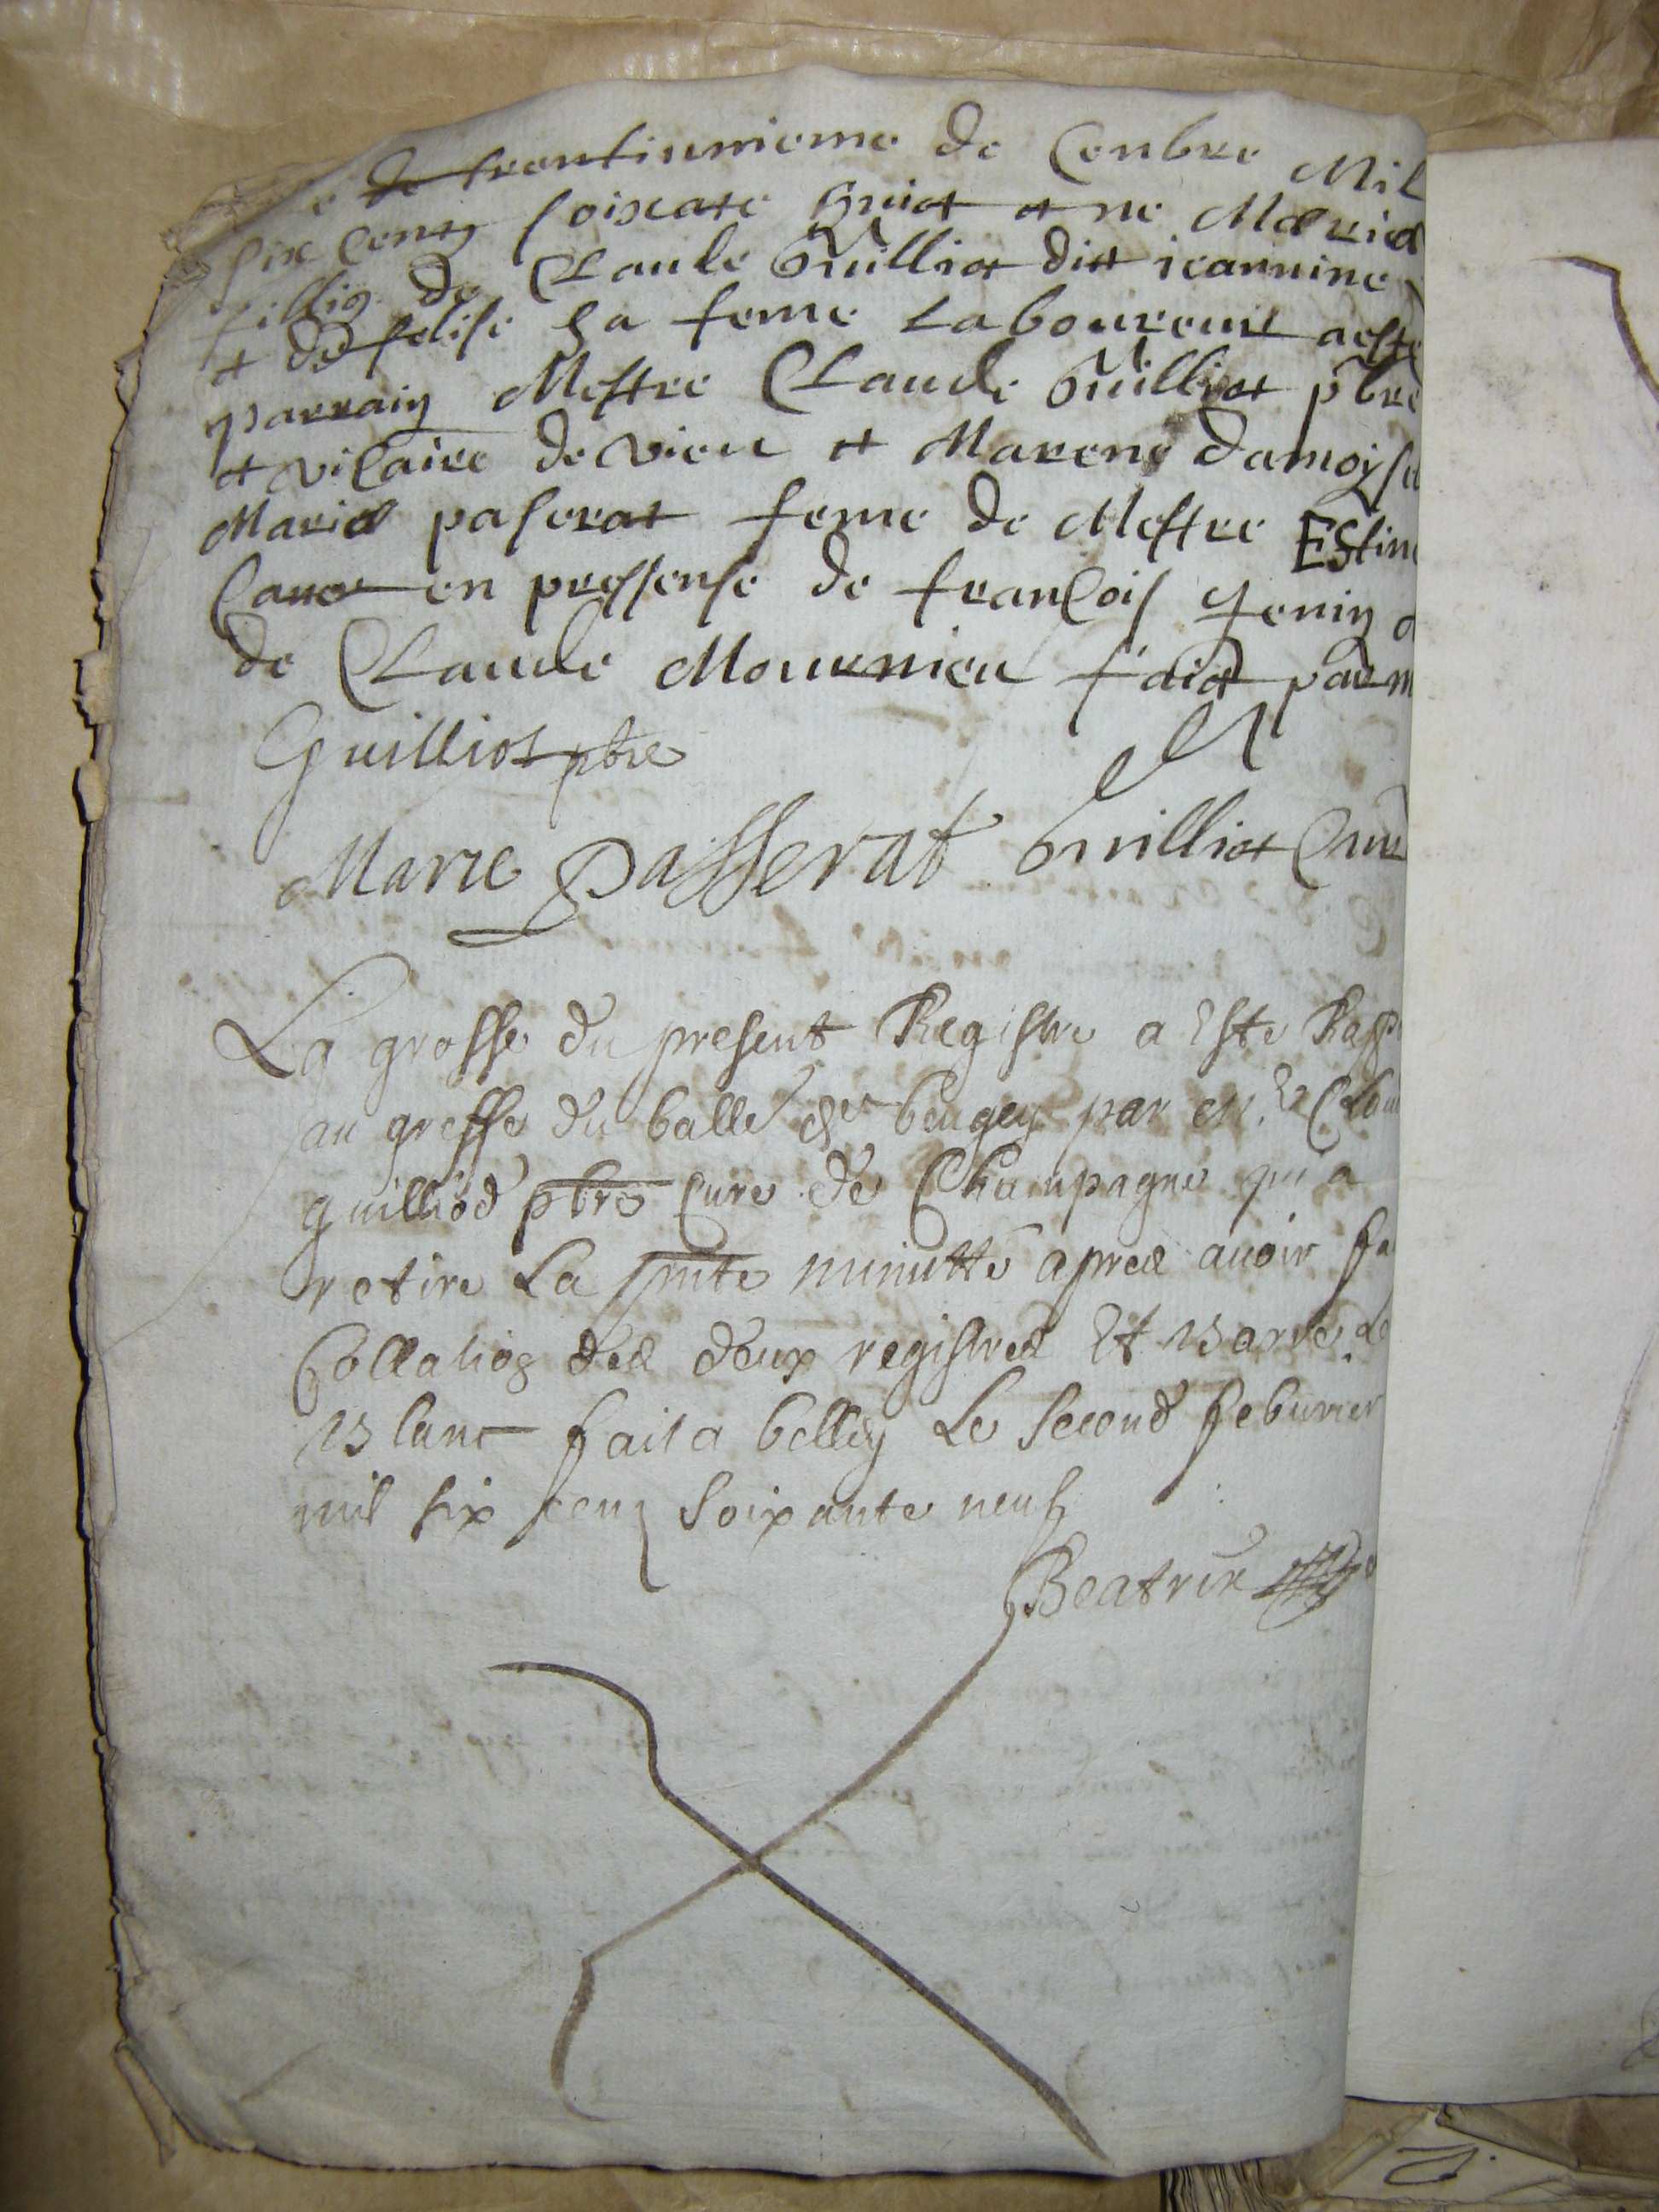 trentiunieme de Cenbre Mil
six Cents soiscate huict et ne Marie
fillie de Claude Guilliot dit ieannine
et de felise sa feme Laboureur aeste
parrain Mestre Claude Guilliot pbre
et viCaire de vieu et Marene damoyse
Marie paserat feme de Mestre Estine
en pressense de franCois Jenin
de Claude Mournieu faict par m
Guilliot pbre
Marie Passerat Guilliot Cure
La grosse du present Registre a Este
au greffe du balle de beugey par Mre Clau
guilliod pbre Cure de Champagne qui a
retire La pnte minutte apres auoir fa
Collation des deux registres Et Barre Le
Blanc fait a belley Le second feburier
mil six cens soixante neuf
Beatrix